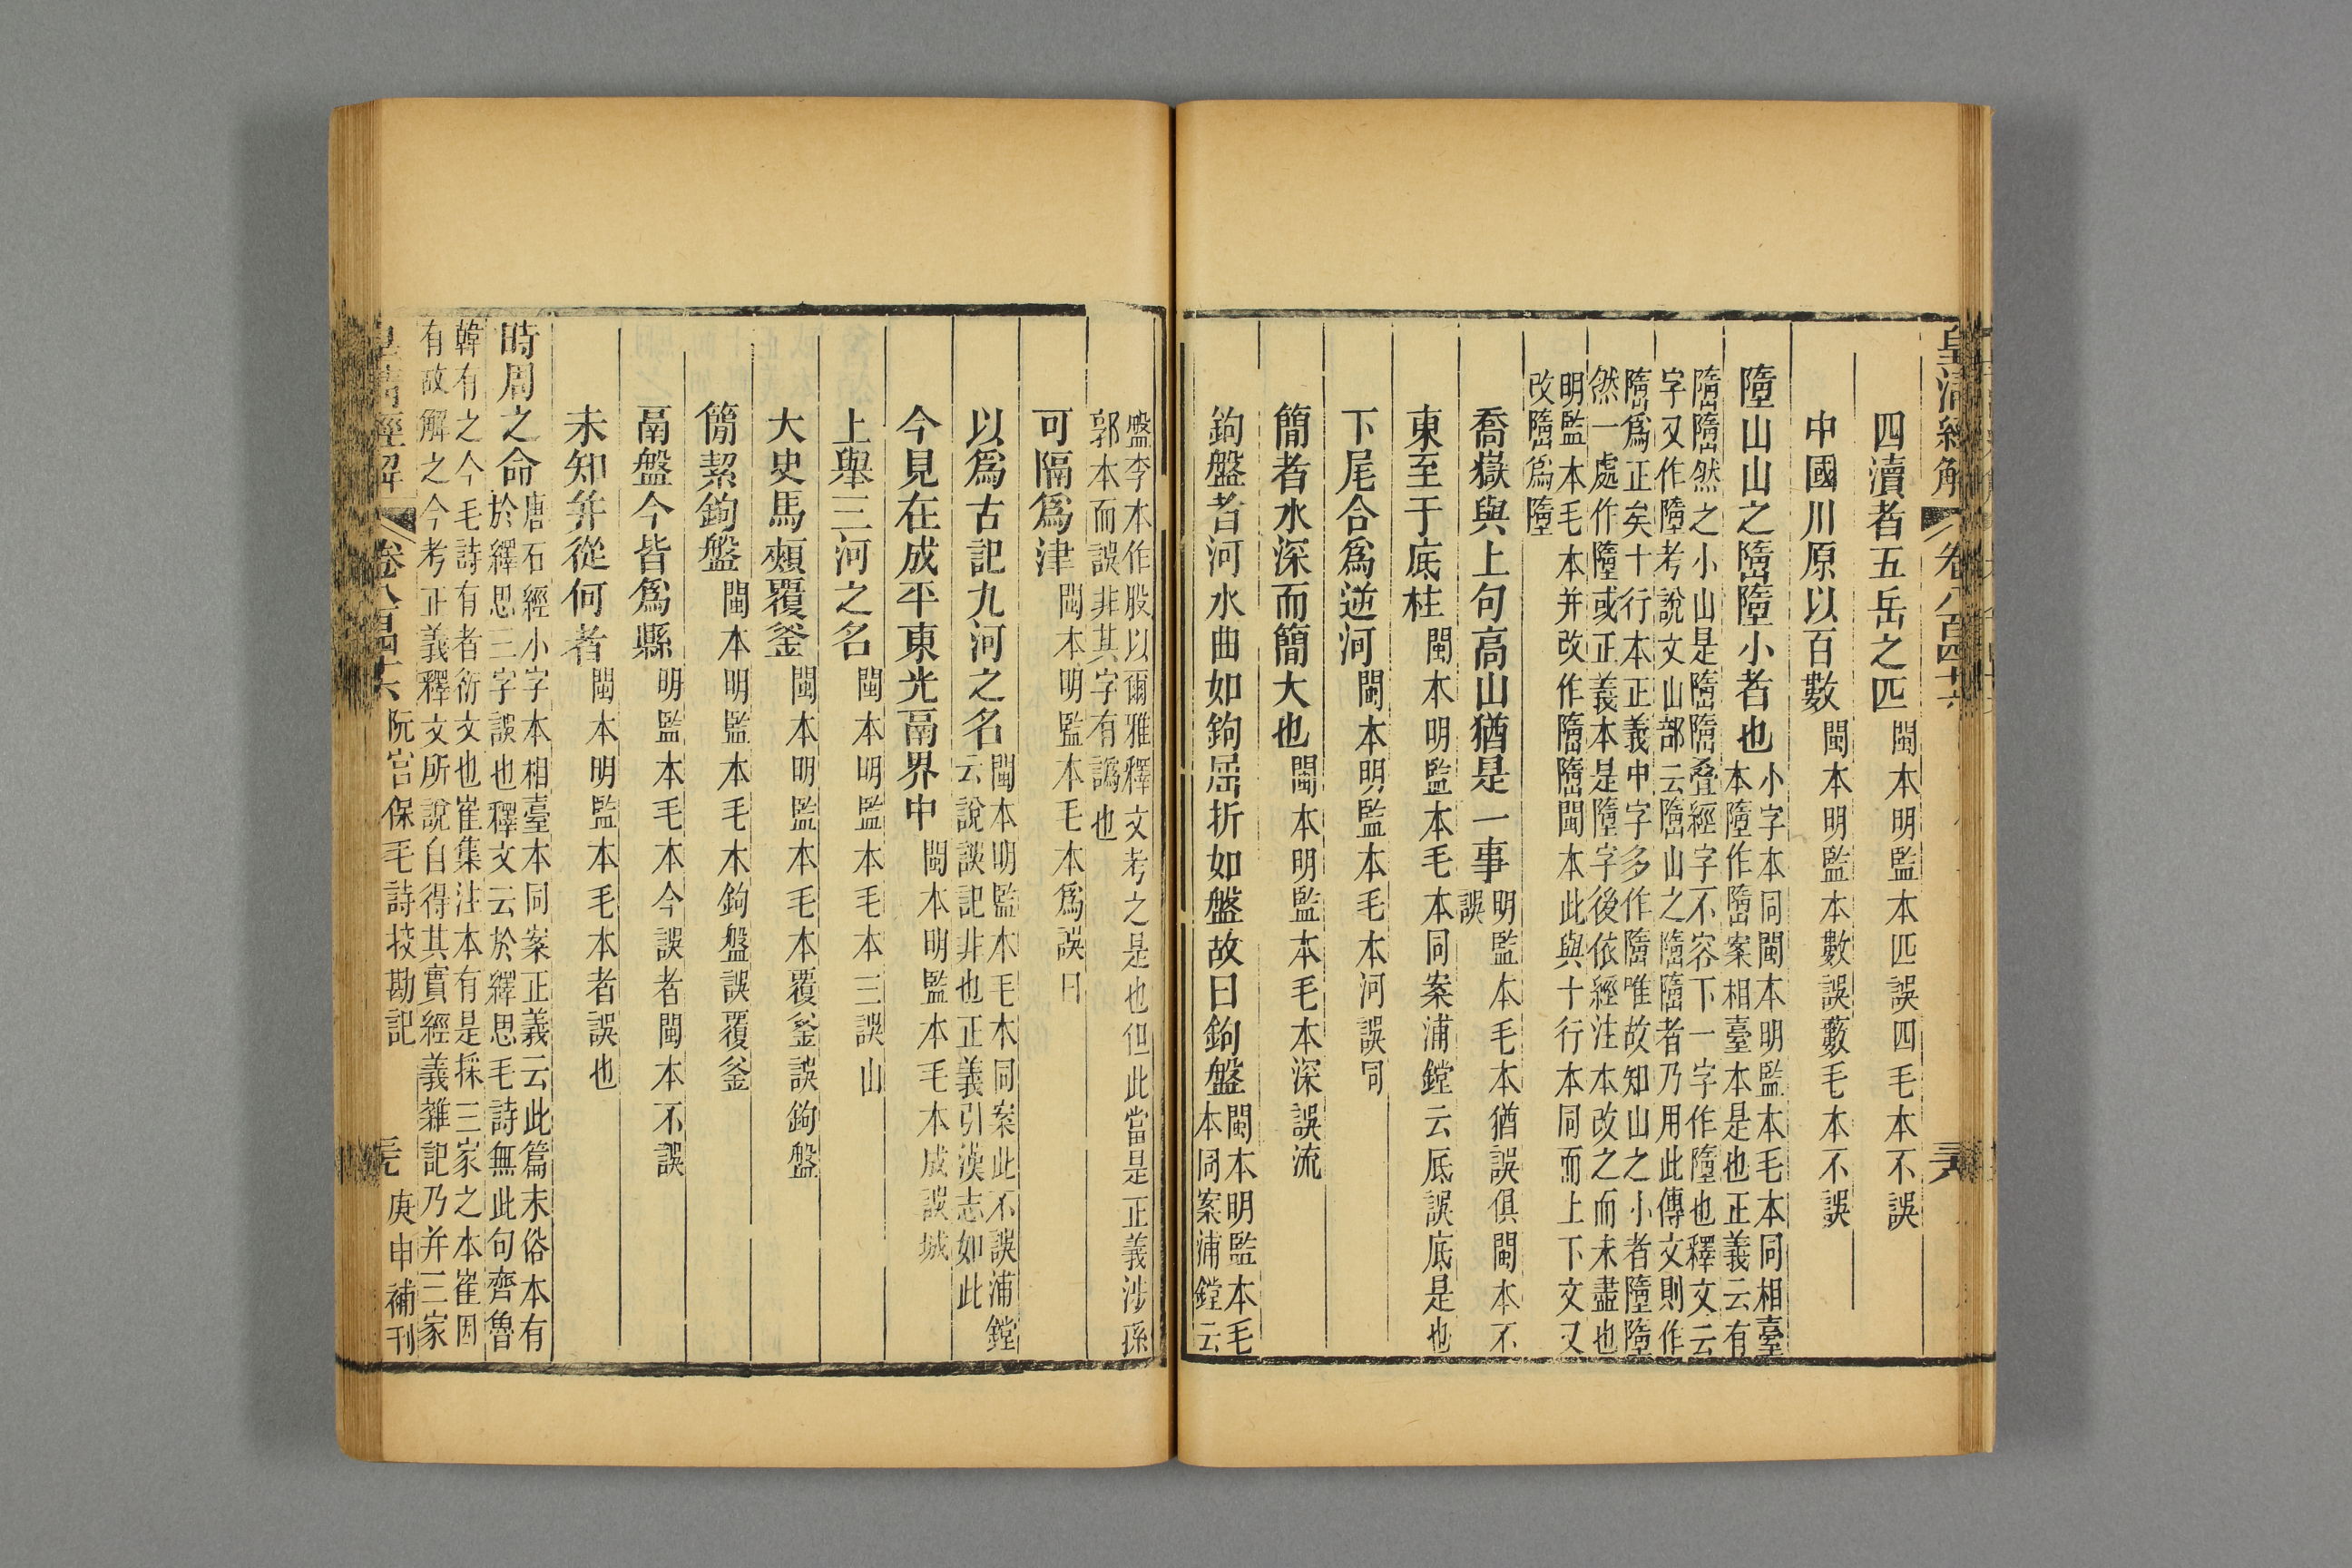 皇清經解 卷八百四十六 三六
四瀆者五岳之匹 閩本明監本匹誤四毛本不誤
中國川原以百數 閩本明監本數誤藪毛本不誤
墮山山之隋墮小者也 小字本同閩本明監本毛本同相臺
本墮作隋案相臺本是也正義云有
隋隋然之小山是隋隋疊經字不容下一字作墮也釋文云
字又作墮考說文山部云隋山之隋隋者乃用此傳文則作
隋爲正矣十行本正義中字多作隋唯故知山之小者墮墮
然一處作墮或正義本是墮字後依經注本改之而未盡也
明監本毛本并改作隋隋閩本此與十行本同而上下文又
改隋爲墮
喬嶽與上句高山猶是一事 明監本毛本猶誤俱閩本不
誤
東至于底柱 閩本明監本毛本同案浦鏜云厎誤底是也
下尾合爲逆河 閩本明監本毛本河誤同
簡者水深而簡大也 閩本明監本毛本深誤流
鉤盤者河水曲如鉤屈折如盤故曰鉤盤 閩本明監本毛
本同案浦鏜云
盤李本作股以爾雅釋文考之是也但此當是正義涉孫
郭本而誤非其字有譌也
可隔爲津 閩本明監本毛本爲誤曰
以爲古記九河之名 閩本明監本毛本同案此不誤浦鏜
云說誤記非也正義引漢志如此
今見在成平東光鬲界中 閩本明監本毛本成誤城
上舉三河之名 閩本明監本毛本三誤山
大史馬頰覆釜 閩本明監本毛本覆釜誤鉤盤
簡絜鉤盤 閩本明監本毛本鉤盤誤覆釜
鬲盤今皆爲縣 明監本毛本今誤者閩本不誤
未知并從何者 閩本明監本毛本者誤也
時周之命 唐石經小字本相臺本同案正義云此篇末俗本有
於繹思三字誤也釋文云於繹思毛詩無此句齊魯
韓有之今毛詩有者衍文也崔集注本有是採三家之本崔因
有故解之今考正義釋文所說自得其實經義雜記乃并三家
皇清經解 卷八百四十六 阮宮保毛詩挍勘記 元 庚申補刊